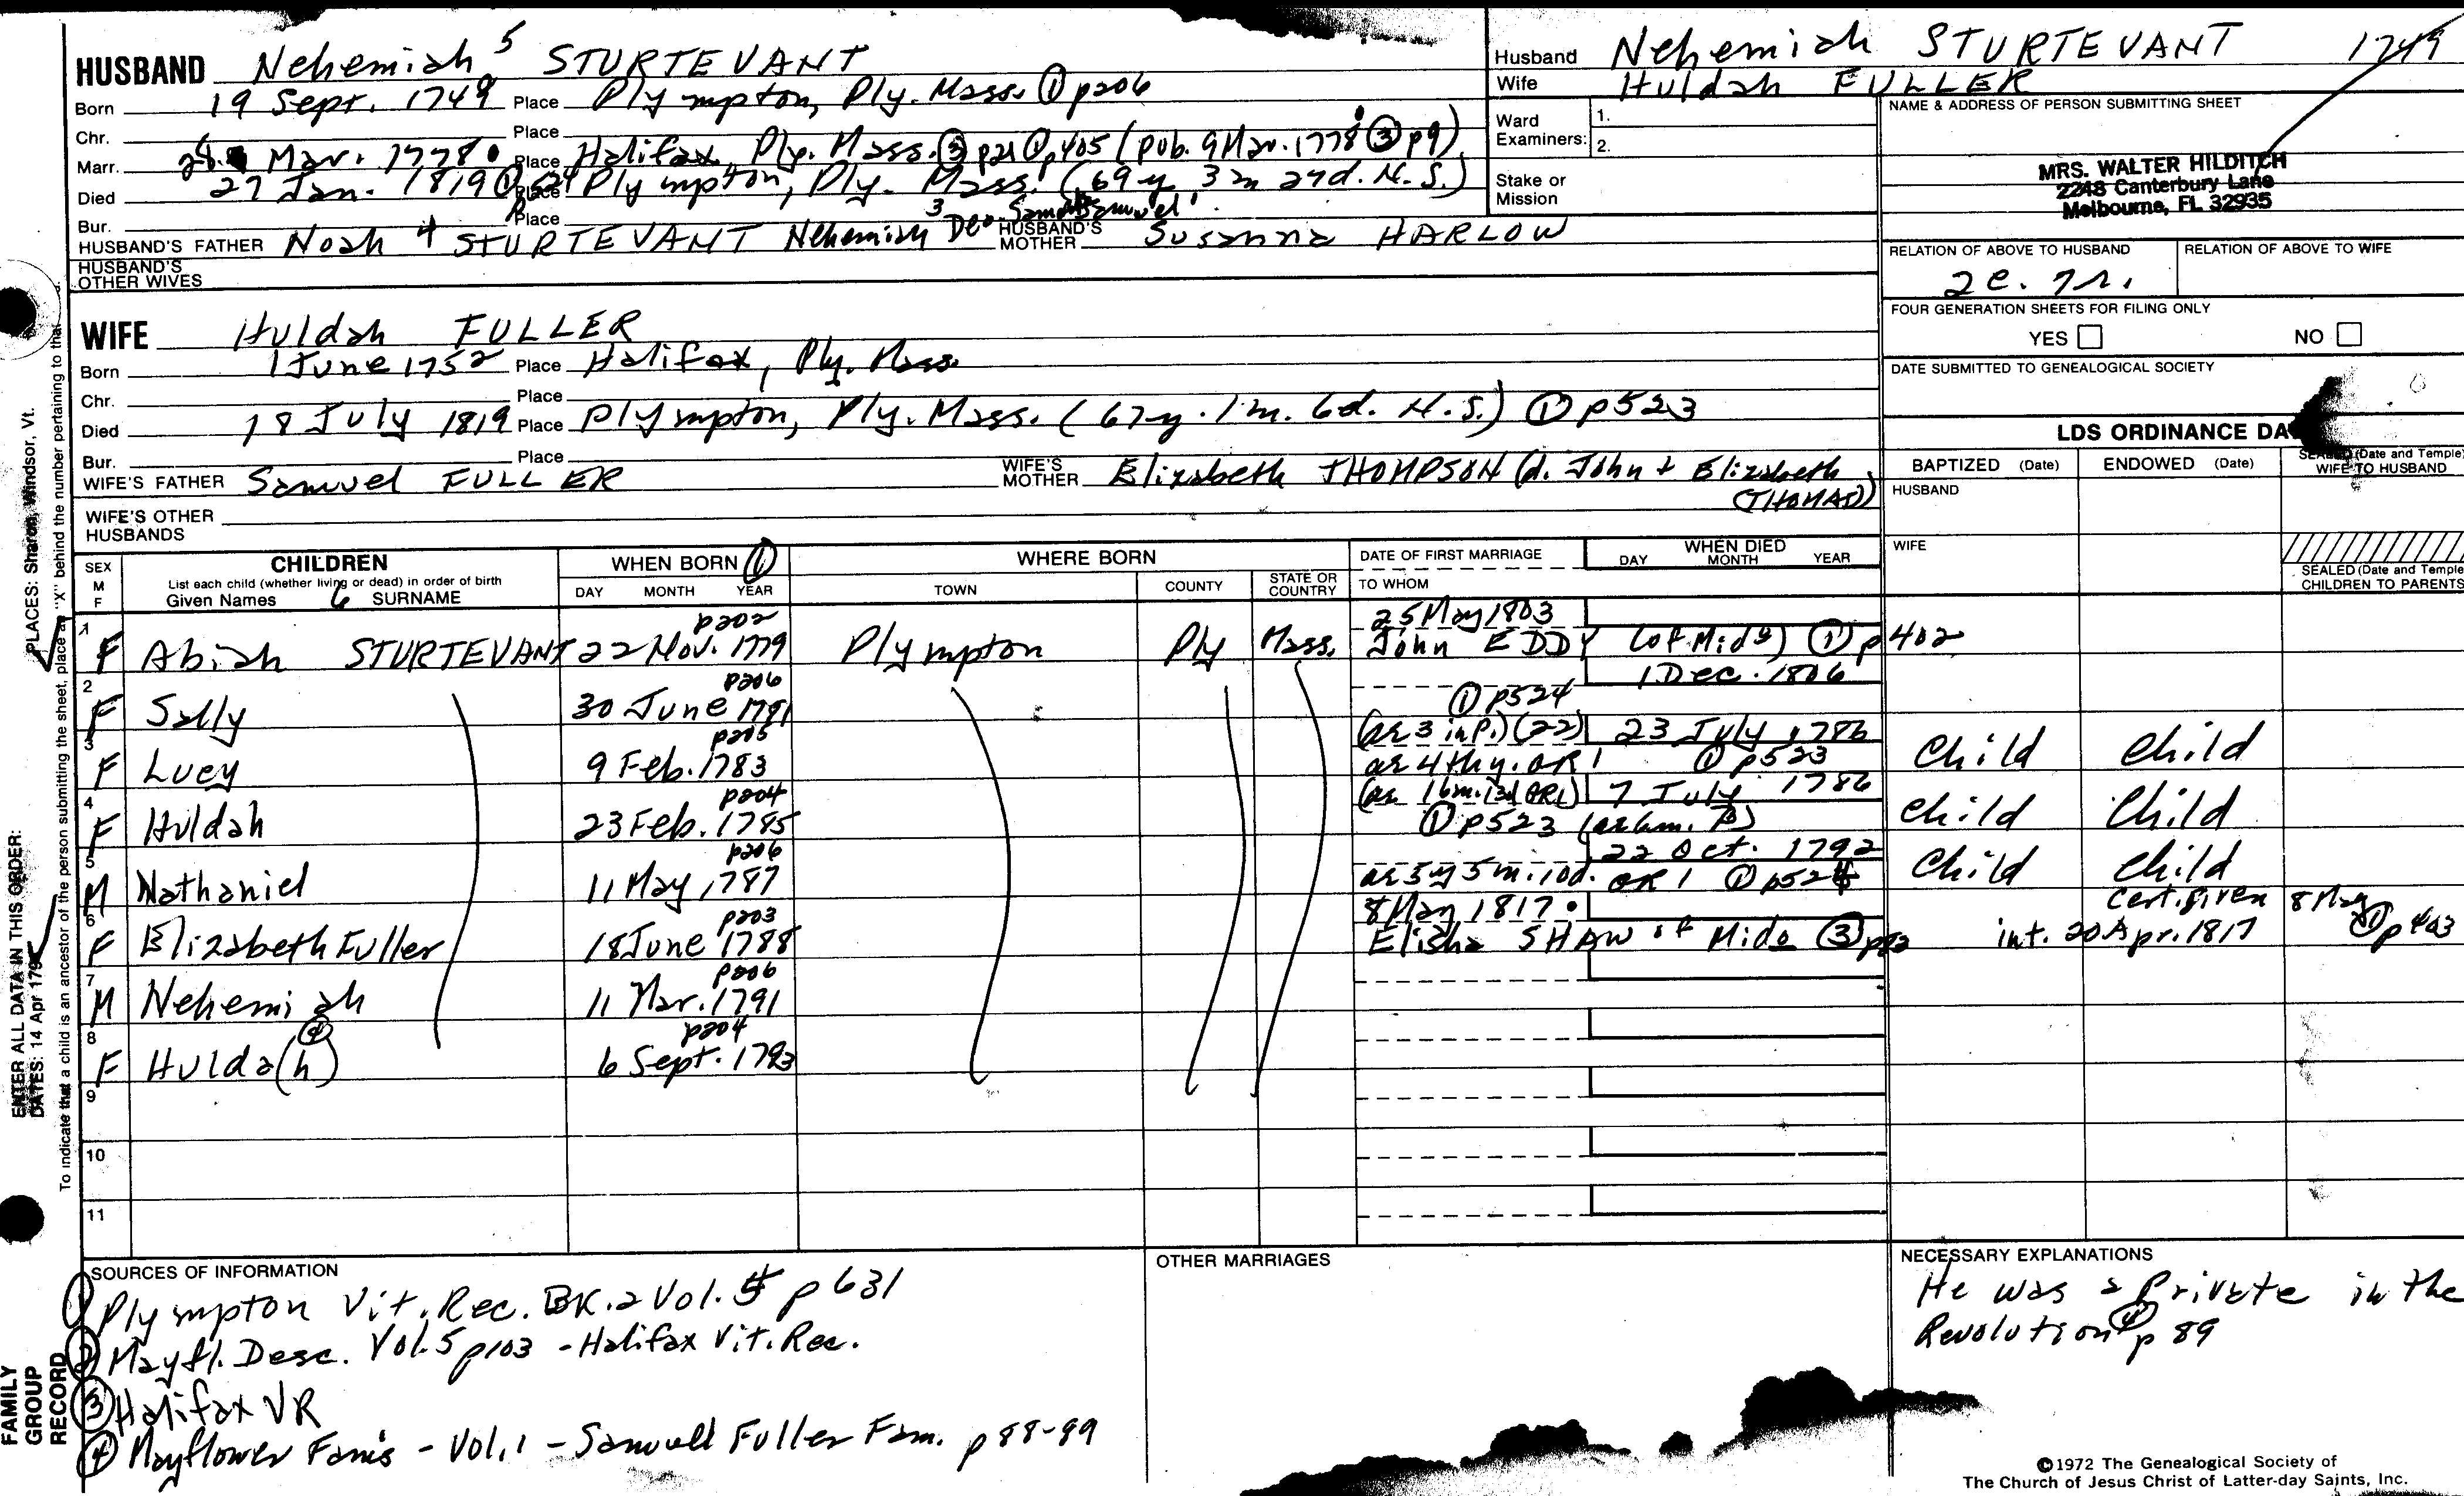 HUSBAND Nehemiah 5 STURTEVANT
Born 19 Sept. 1749 Place Plympton, Ply. Mass. ① p206
Chr. Place
Marr. Mar. 1778 Place Halifax, Ply. Mass. ③ p21 ① p405 (pub. 9 Mar. 1778 ③ p9)
Died 27 Jan. 1819 ① Place Plympton, Ply. Mass. (69y 3m 27d. N.S.)
Bur. Place
HUSBAND'S FATHER Noah 4 STURTEVANT Nehemiah 3 Samuel HUSBAND'S MOTHER Susanna HARLOW
HUSBAND'S OTHER WIVES
Husband Nehemiah STURTEVANT 1749
Wife Huldah FULLER
Ward Examiners: 1.
2.
Stake or Mission
NAME & ADDRESS OF PERSON SUBMITTING SHEET
MRS. WALTER HILDITCH
2248 Canterbury Lane
Melbourne, FL 32935
RELATION OF ABOVE TO HUSBAND RELATION OF ABOVE TO WIFE
FOUR GENERATION SHEETS FOR FILING ONLY
YES NO
DATE SUBMITTED TO GENEALOGICAL SOCIETY
WIFE Huldah FULLER
Born 1 June 1752 Place Halifax, Ply. Mass.
Chr. Place
Died 18 July 1819 Place Plympton, Ply. Mass. (67y. 1m. 6d. N.S.) ① p523
Bur. Place
WIFE'S FATHER Samuel FULLER WIFE'S MOTHER Elizabeth THOMPSON (d. John + Elizabeth (THOMAS))
WIFE'S OTHER HUSBANDS
LDS ORDINANCE DA
BAPTIZED (Date) ENDOWED (Date) SEALED (Date and Temple) WIFE TO HUSBAND
HUSBAND
WIFE
SEALED (Date and Temple) CHILDREN TO PARENTS
SEX M F
CHILDREN
List each child (whether living or dead) in order of birth
Given Names 6 SURNAME
WHEN BORN ①
DAY MONTH YEAR
WHERE BORN
TOWN COUNTY STATE OR COUNTRY
DATE OF FIRST MARRIAGE
TO WHOM
WHEN DIED
DAY MONTH YEAR
p202 25 May 1803
1 F Abiah STURTEVANT 22 Nov. 1779 Plympton Ply Mass. John EDDY (of Midº) ① p402
p206 1 Dec. 1806
2 F Sally 30 June 1781 ① p524
p205 (ae 3 in P.) (22) 23 July 1786
3 F Lucy 9 Feb. 1783 ae 4th y. GR1 ① p523 Child Child
p204 (ae 16m. 13d GR1) 7 July 1786
4 F Huldah 23 Feb. 1785 ① p523 Child Child
p206 22 Oct. 1792
5 M Nathaniel 11 May 1787 ae 5y 5m. 10d. GR1 ① p524 Child Child
p203 8 May 1817 Cert. given 8 May
6 F Elizabeth Fuller 18 June 1788 Elisha SHAW of Mido ③ int. 20 Apr. 1817 ① p403
p206
7 M Nehemiah 11 Mar. 1791
④ p204
8 F Hulda(h) 6 Sept. 1793
9
10
11
SOURCES OF INFORMATION
① Plympton Vit. Rec. BK.2 Vol. 5 p 631
② Mayfl. Desc. Vol. 5 p103 - Halifax Vit. Rec.
③ Halifax VR
④ Mayflower Fam's - Vol. 1 - Samuell Fuller Fam. p 88-89
OTHER MARRIAGES
NECESSARY EXPLANATIONS
He was a Private in the
Revolution ④ p 89
©1972 The Genealogical Society of
The Church of Jesus Christ of Latter-day Saints, Inc.
PLACES: Sharon, Windsor, Vt.
ENTER ALL DATA IN THIS ORDER:
DATES: 14 Apr 179
To indicate that a child is an ancestor of the person submitting the sheet, place an "X" behind the number pertaining to that
FAMILY
GROUP
RECORD